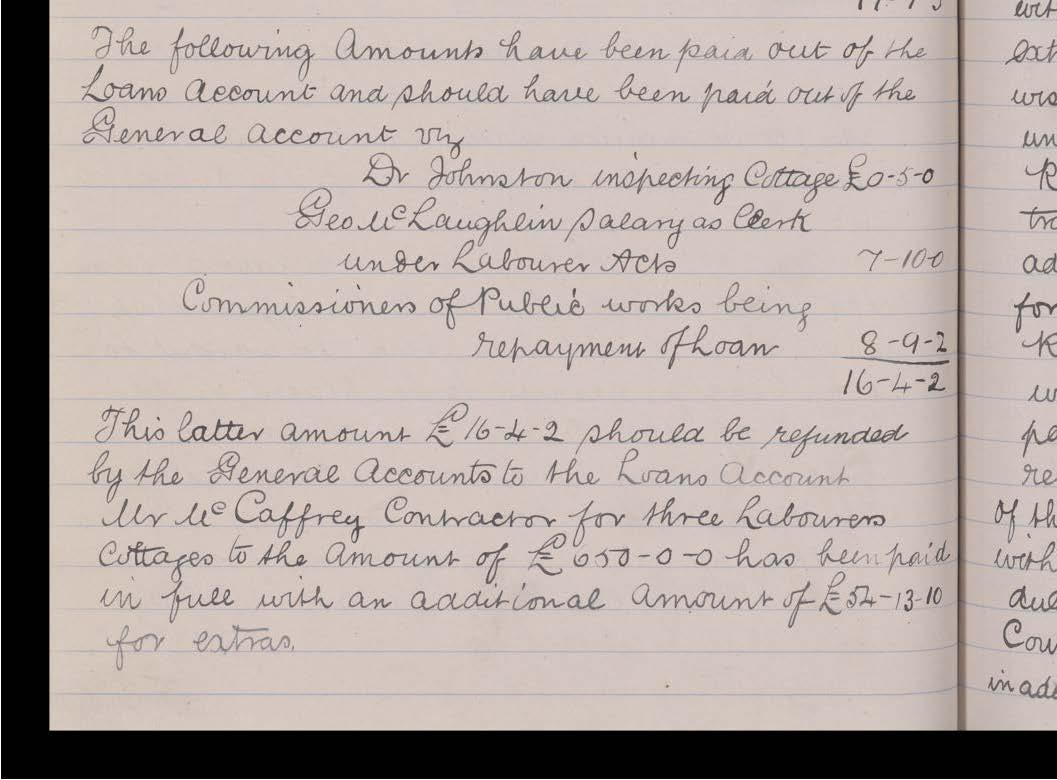 The following Amounts have been paid out of the
Loans Account and should have been paid out of the
General Account viz
Dr Johnston inspecting Cottage £0-5-0
Geo McLaughlin Salary as Clerk
under Labourer Acts 7-10-0
Commissioners of Public works being
repayment of Loan 8-9-2
16-4-2
This latter amount £16-4-2 should be refunded
by the General Accounts to the Loans Account
Mr McCaffrey Contractor for three Labourers
Cottages to the Amount of £650-0-0 has been paid
in full with an additional Amount of £54-13-10
for extras.
un
for
of th
with
in add